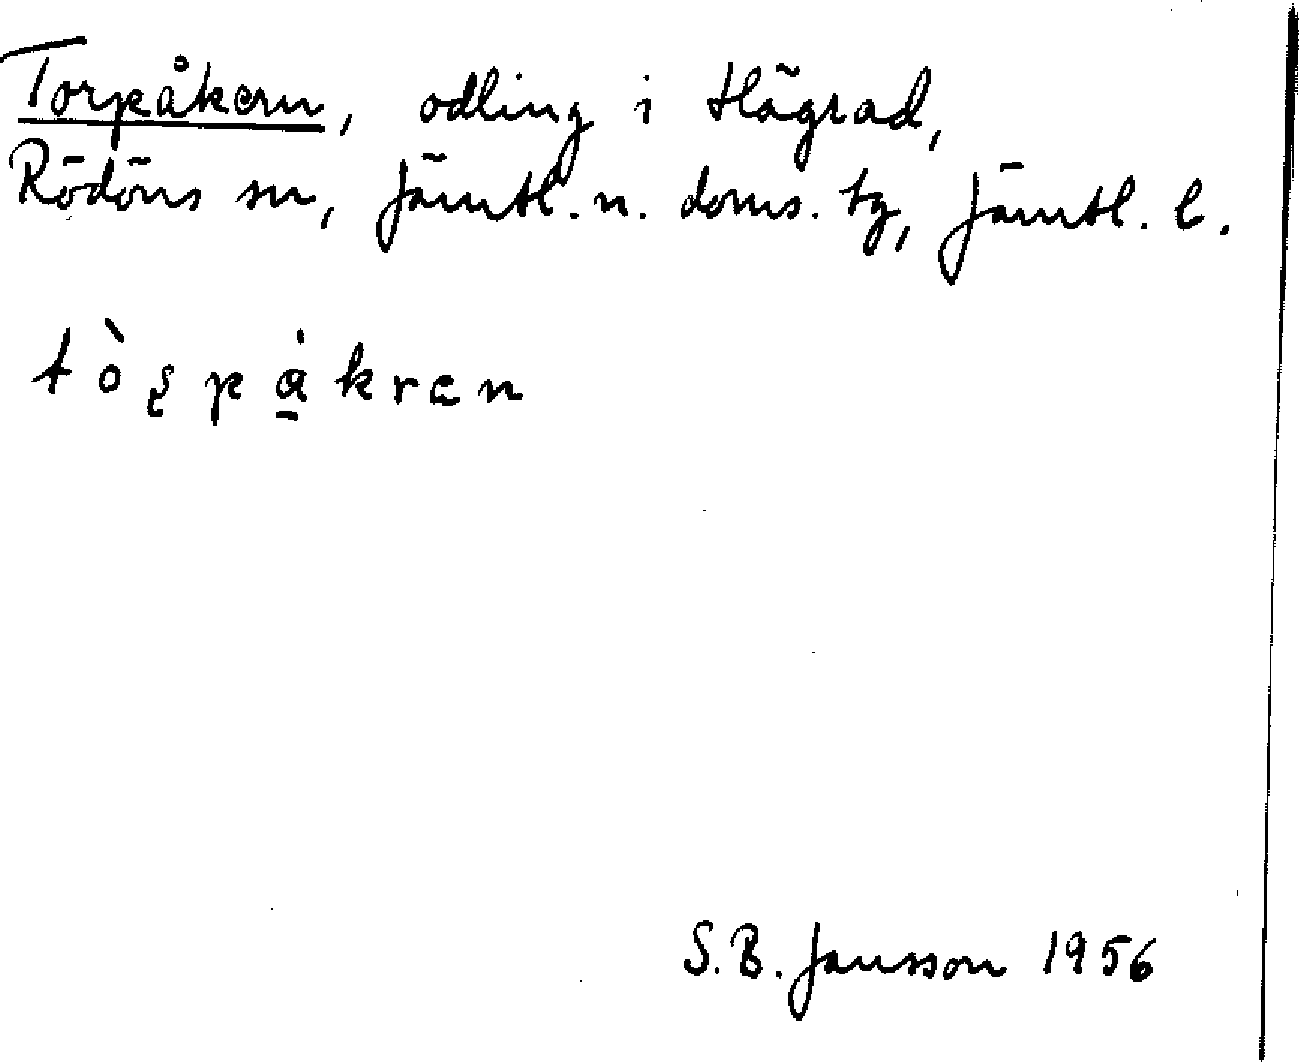 Torpåkern, odling i Hägrad,
Rödöns sn, Jämtl. n. doms. tg, Jämtl. l.
S.B. Jansson 1956